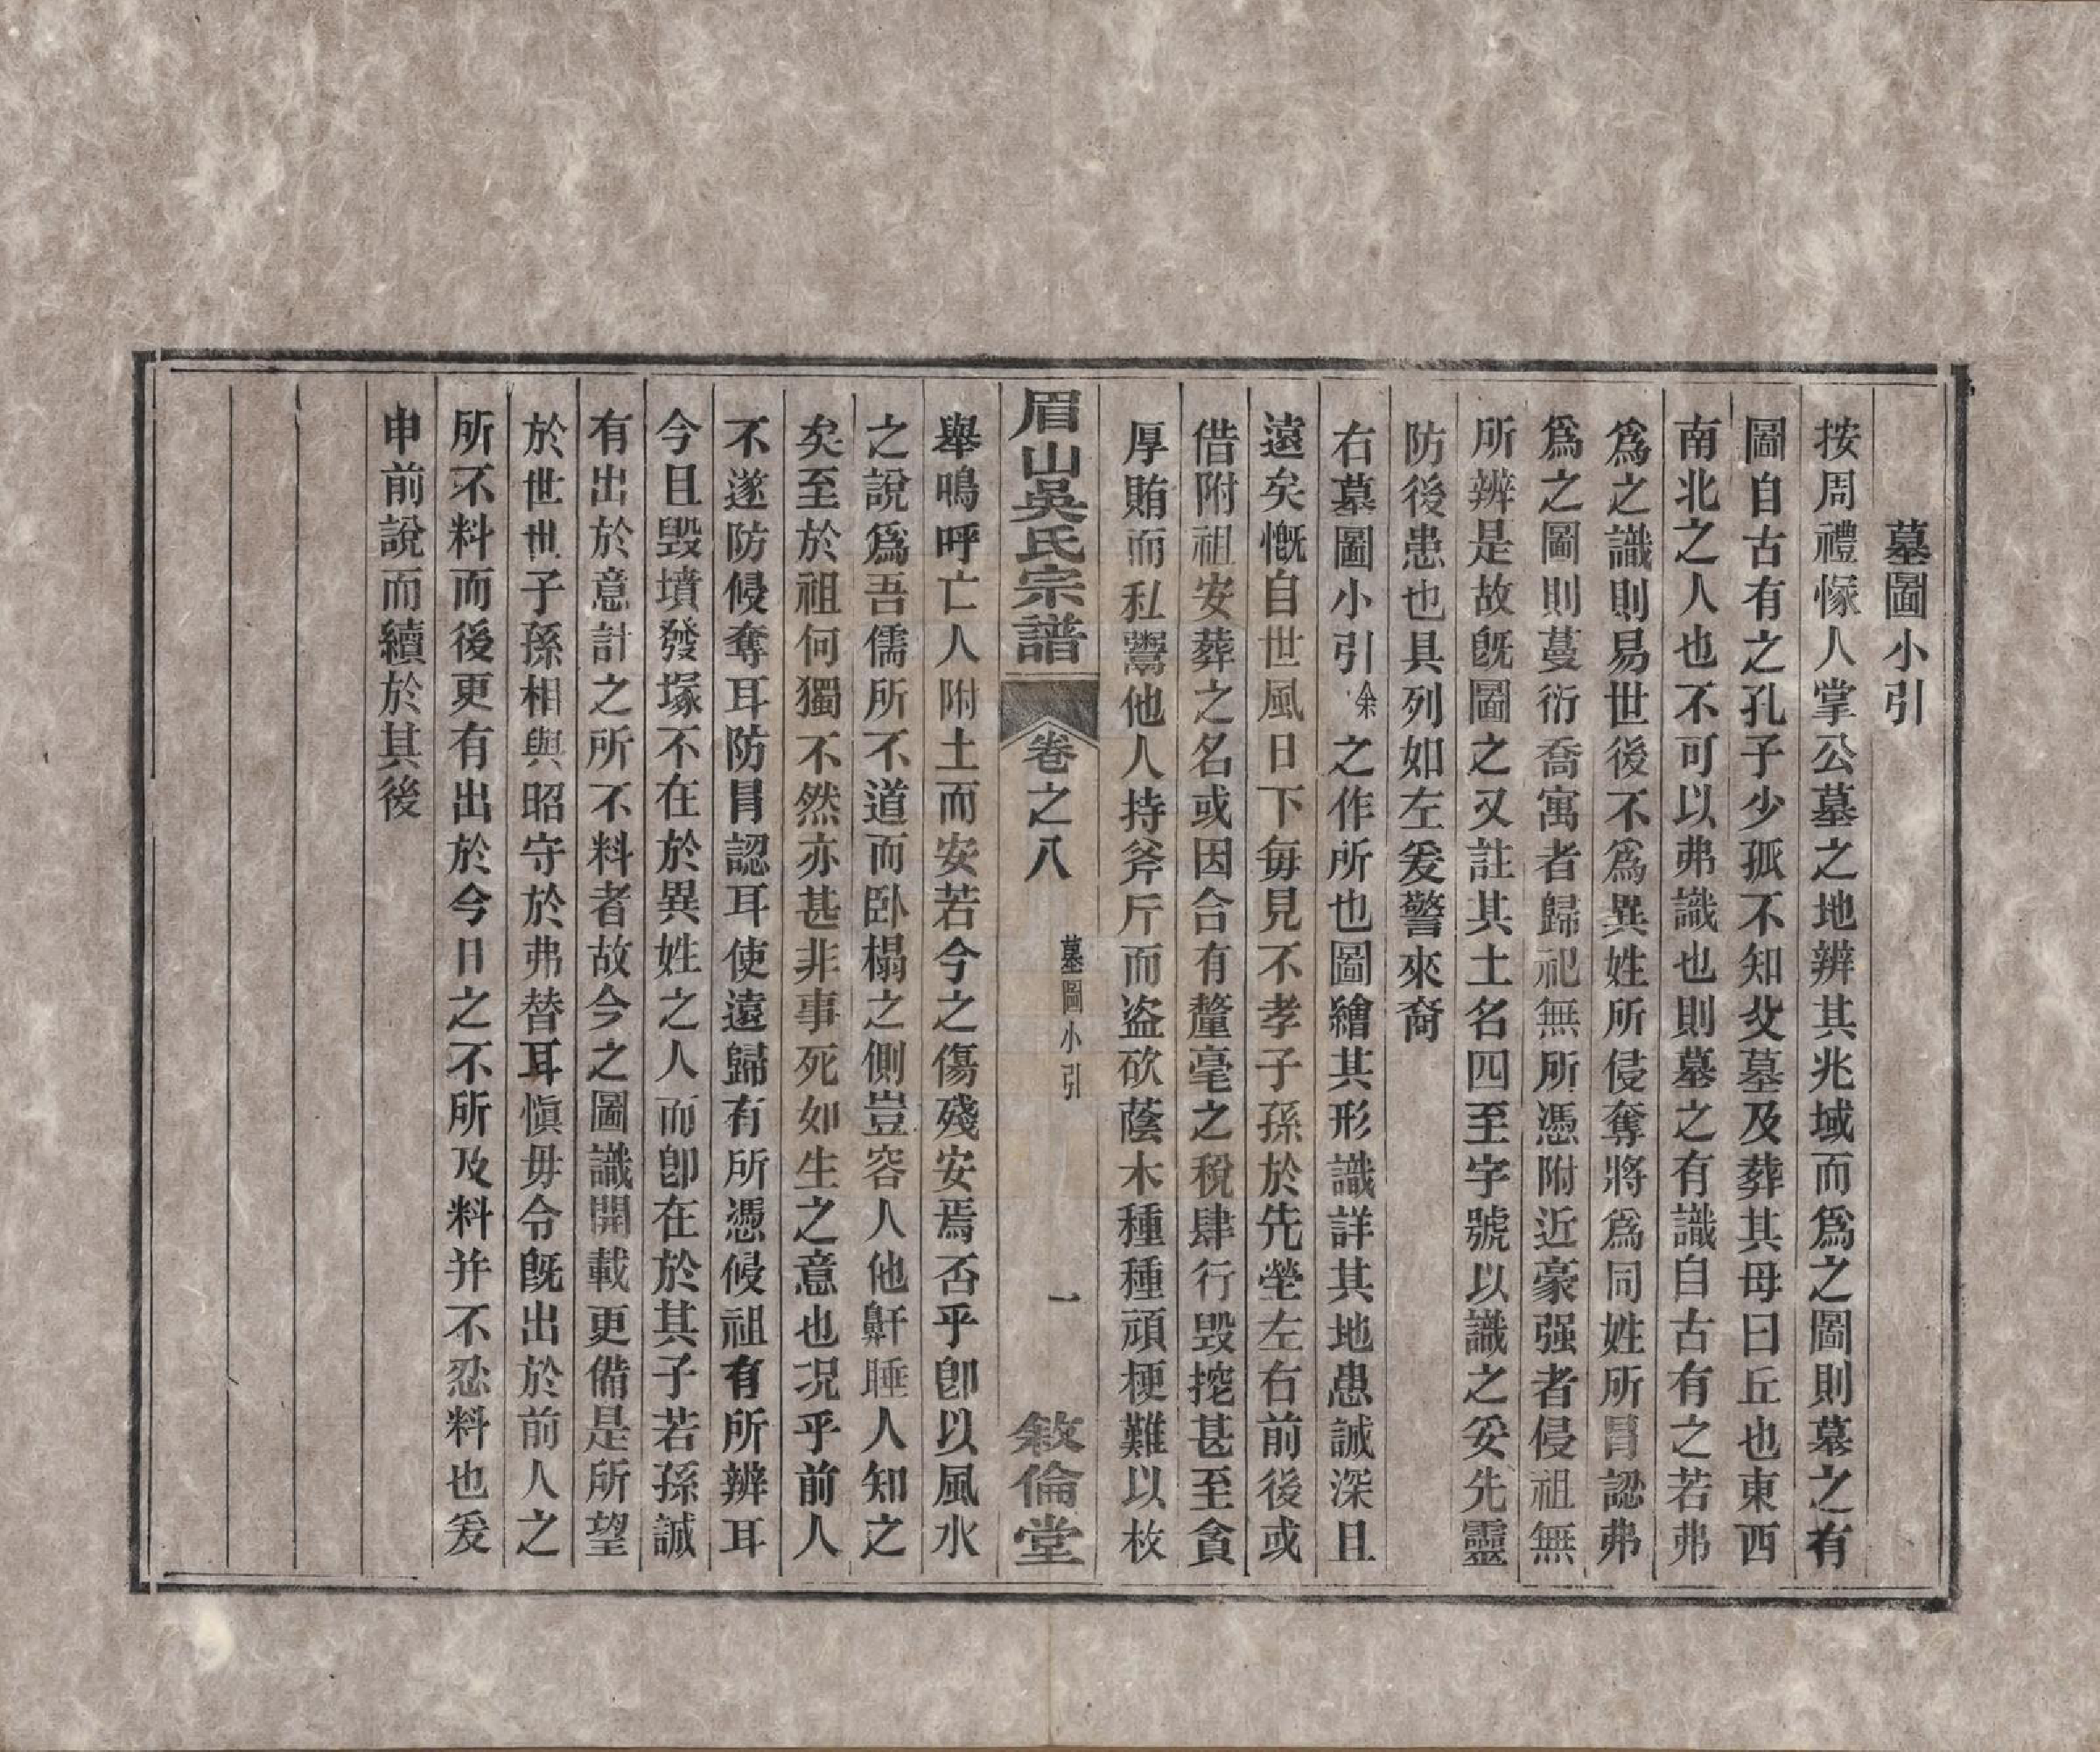 墓圖小引
按周禮冢人掌公墓之地辨其兆域而爲之圖則墓之有
圖自古有之孔子少孤不知父墓及葬其母曰丘也東西
南北之人也不可以弗識也則墓之有識自古有之若弗
爲之識則易世後不爲異姓所侵奪將爲同姓所冐認弗
爲之圖則蔓衍喬寓者歸祀無所憑附近豪强者侵祖無
所辨是故旣圖之又註其土名四至字號以識之妥先靈
防後患也具列如左爰警來裔
右墓圖小引余之作所也圖繪其形識詳其地患誠深且
遠矣慨自世風日下每見不孝子孫於先塋左右前後或
借附祖安葬之名或因合有釐毫之稅肆行毁挖甚至貪
厚賄而私鬻他人持斧斤而盗砍蔭木種種頑梗難以枚
眉山吳氏宗譜 卷之八 墓圖小引 一 敘倫堂
舉嗚呼亡人附土而安若今之傷殘安焉否乎卽以風水
之說爲吾儒所不道而卧榻之側豈容人他鼾睡人知之
矣至於祖何獨不然亦甚非事死如生之意也况乎前人
不遂防侵奪耳防冐認耳使遠歸有所憑侵祖有所辨耳
今且毁墳發塚不在於異姓之人而卽在於其子若孫誠
有出於意計之所不料者故今之圖識開載更備是所望
於世世子孫相與昭守於弗替耳愼毋令旣出於前人之
所不料而後更有出於今日之不所及料并不忍料也爰
申前說而續於其後